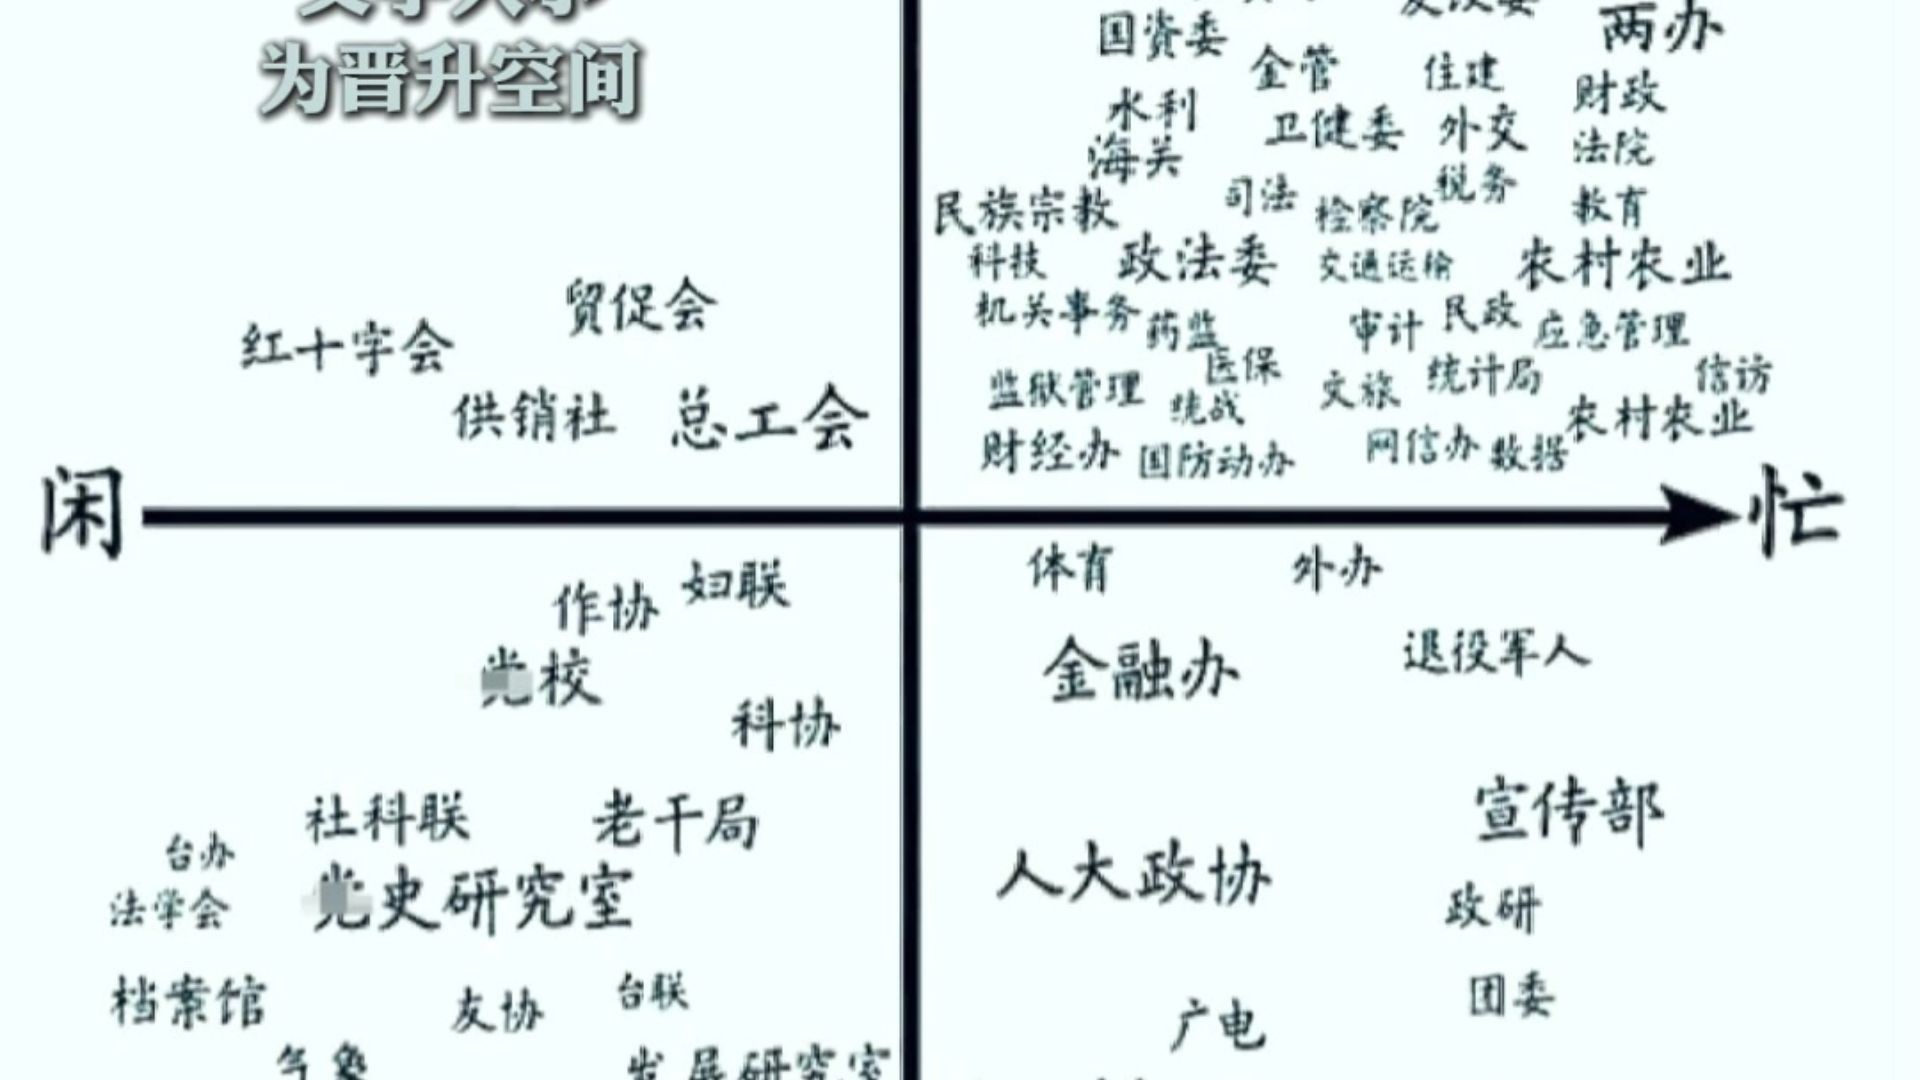 为晋升空间
国资委
两办
金管
住建
财政
水利
卫健委
外交
法院
海关
司法
税务
民族宗教
检察院
教育
科技
政法委
交通运输
农村农业
机关事务
药监
审计
民政
应急管理
医保
监狱管理
统战
文旅
统计局
信访
农村农业
财经办
国防动办
网信办
数据
红十字会
贸促会
供销社
总工会
闲
忙
作协
妇联
党校
科协
社科联
老干局
台办
法学会
党史研究室
档案馆
友协
台联
气象
发展研究室
体育
外办
金融办
退役军人
宣传部
人大政协
政研
团委
广电